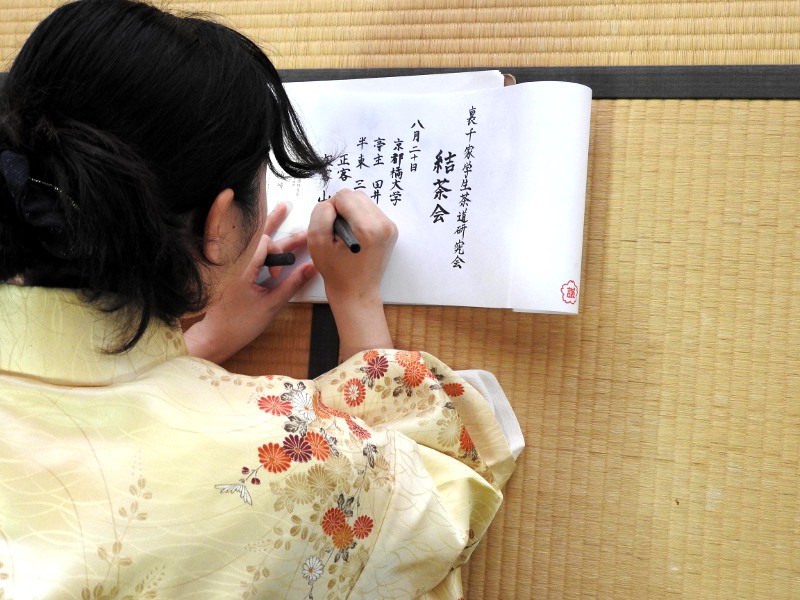 裏千家学生茶道研究会
結茶会
八月二十日
京都橘大学
亭主 田井
半東 三
正客
山